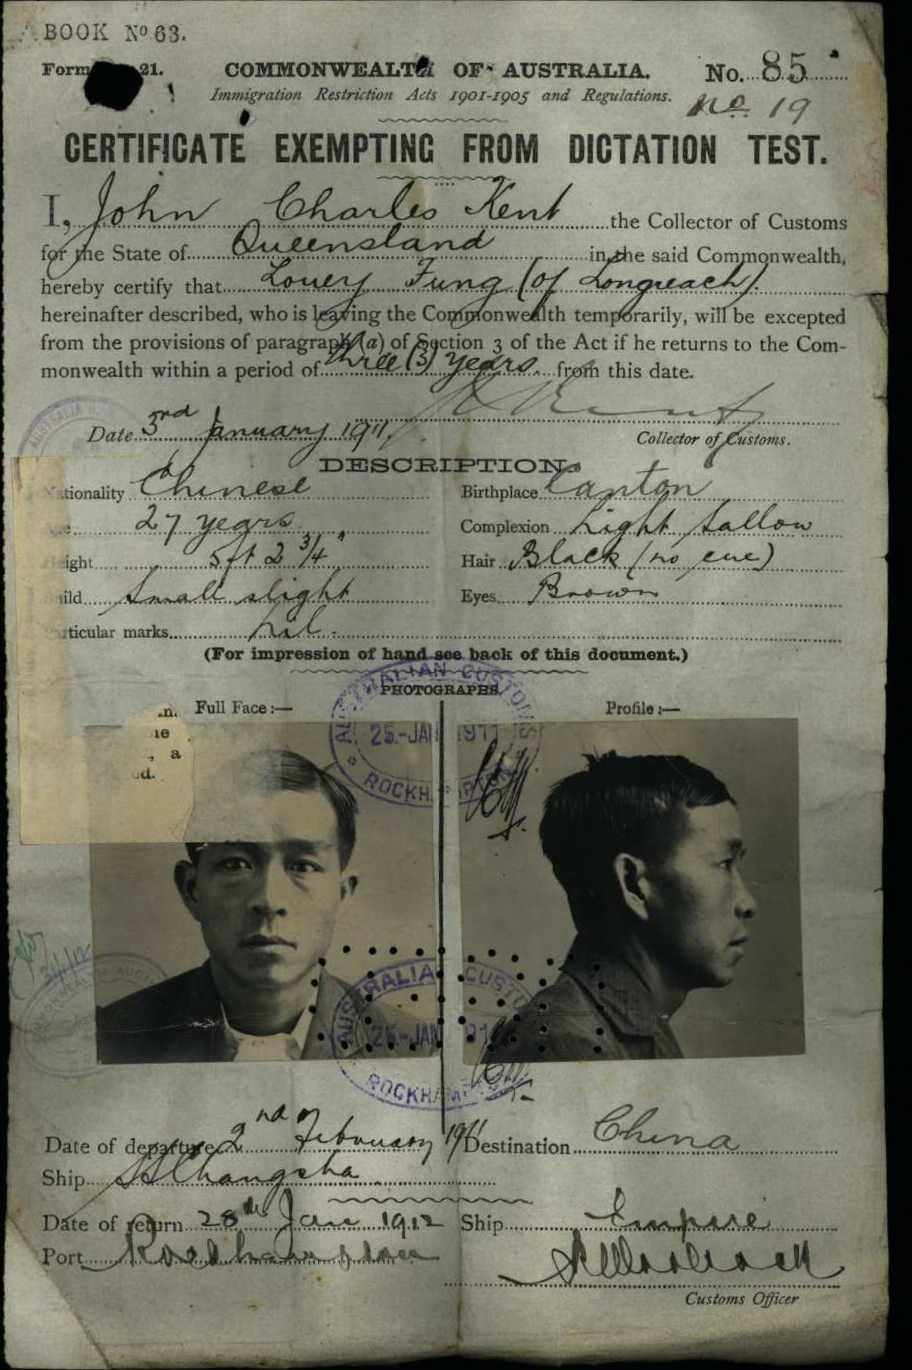 BOOK No 63.
Form 21.
COMMONWEALTH OF AUSTRALIA.
No. 85
Immigration Restriction Acts 1901-1905 and Regulations.
No. 19
CERTIFICATE EXEMPTING FROM DICTATION TEST.
I, John Charles Kent the Collector of Customs
for the State of Queensland in the said Commonwealth,
hereby certify that Louey Fung (of Longreach)
hereinafter described, who is leaving the Commonwealth temporarily, will be excepted
from the provisions of paragraph (a) of Section 3 of the Act if he returns to the Com-
monwealth within a period of three (3) years from this date.
Date 3rd January 1911.
Collector of Customs.
DESCRIPTION.
Nationality Chinese Birthplace Canton
27 years Complexion Light Sallow
eight 5ft 2 3/4" Hair Black (no cue)
uild Small slight Eyes Brown
rticular marks Nil.
(For impression of hand see back of this document.)
PHOTOGRAPHS.
Full Face:— Profile:—
, a
AUSTRALIAN CUSTOMS
25-JAN 1911
ROCKHAMPTON
AUSTRALIAN CUSTO
25-JAN 191
ROCKHAMP
Date of departure 2nd February 1911 Destination China
Ship SS Changsha
Date of return 28th Jan 1912 Ship Empire
Port Rockhampton
Customs Officer